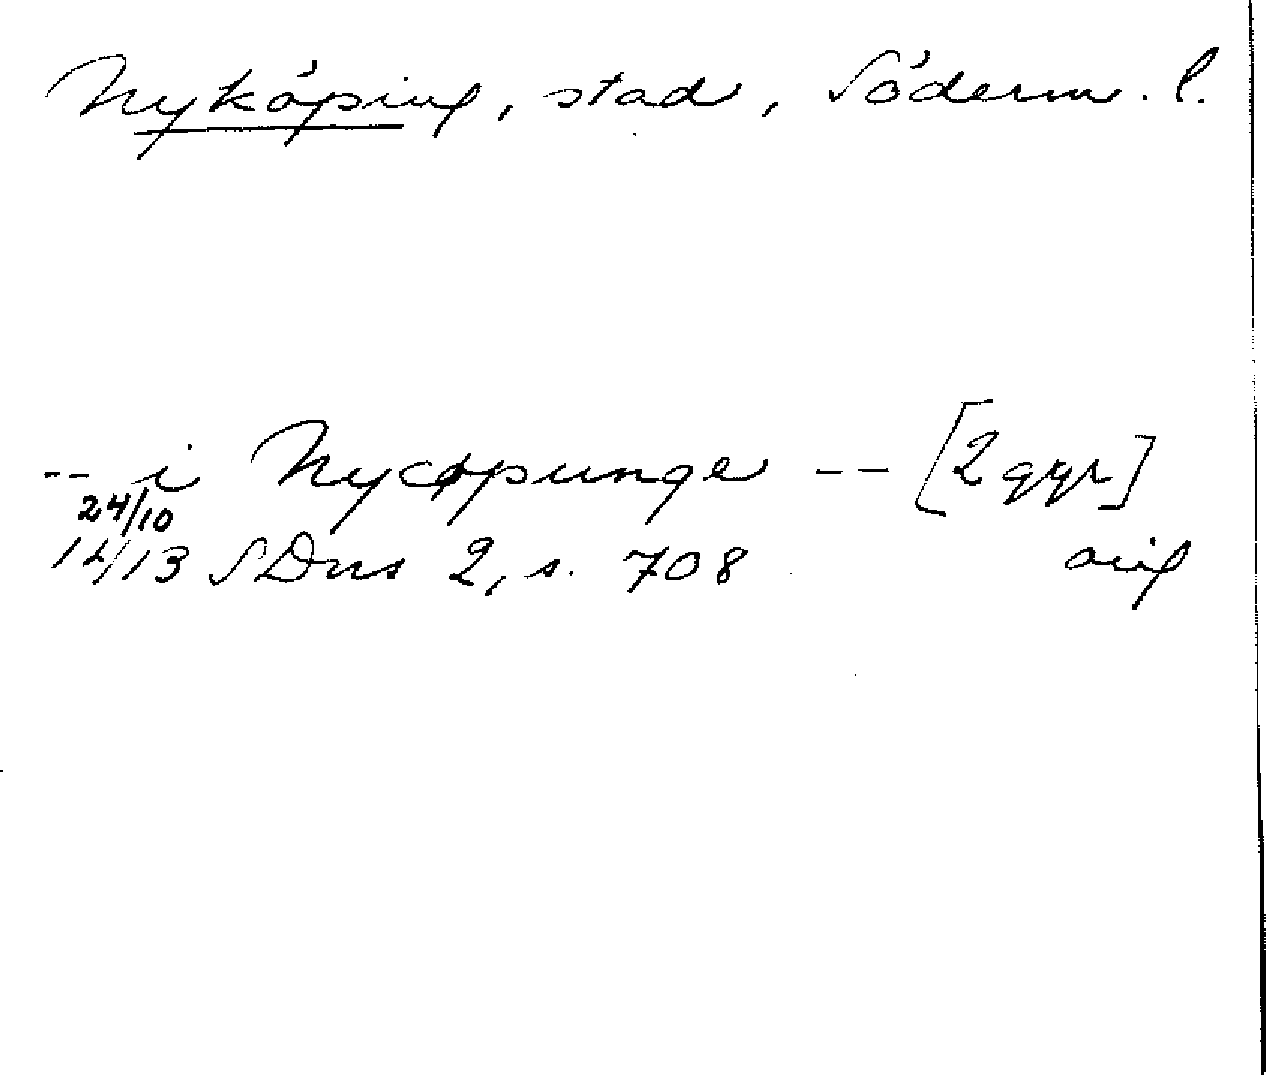 Nyköping, stad, Söderm. l.
-- i Nycøpunge -- [2 ggr]
24/10
14/13 SDns 2, s. 708 orig